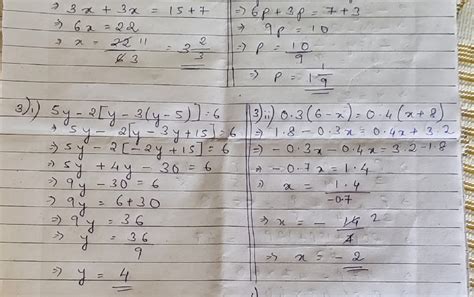 ⇒ 3x + 3x = 15+7
⇒ 6x = 22
⇒ x = 22 11 / 6 3 = 3 2/3
⇒ 6p + 3p = 7 + 3
⇒ 9p = 10
⇒ p = 10/9
⇒ p = 1 1/9
3) i) 5y - 2[y - 3(y-5)] = 6
⇒ 5y - 2[y - 3y + 15] = 6
⇒ 5y - 2[-2y + 15] = 6
⇒ 5y + 4y - 30 = 6
⇒ 9y - 30 = 6
⇒ 9y = 6 + 30
⇒ 9y = 36
⇒ y = 36/9
⇒ y = 4
3) ii) 0.3(6-x) = 0.4(x+8)
⇒ 1.8 - 0.3x = 0.4x + 3.2
⇒ -0.3x - 0.4x = 3.2 - 1.8
⇒ -0.7x = 1.4
⇒ x = 1.4 / -0.7
⇒ x = - 14 2 / 7
⇒ x = - 2